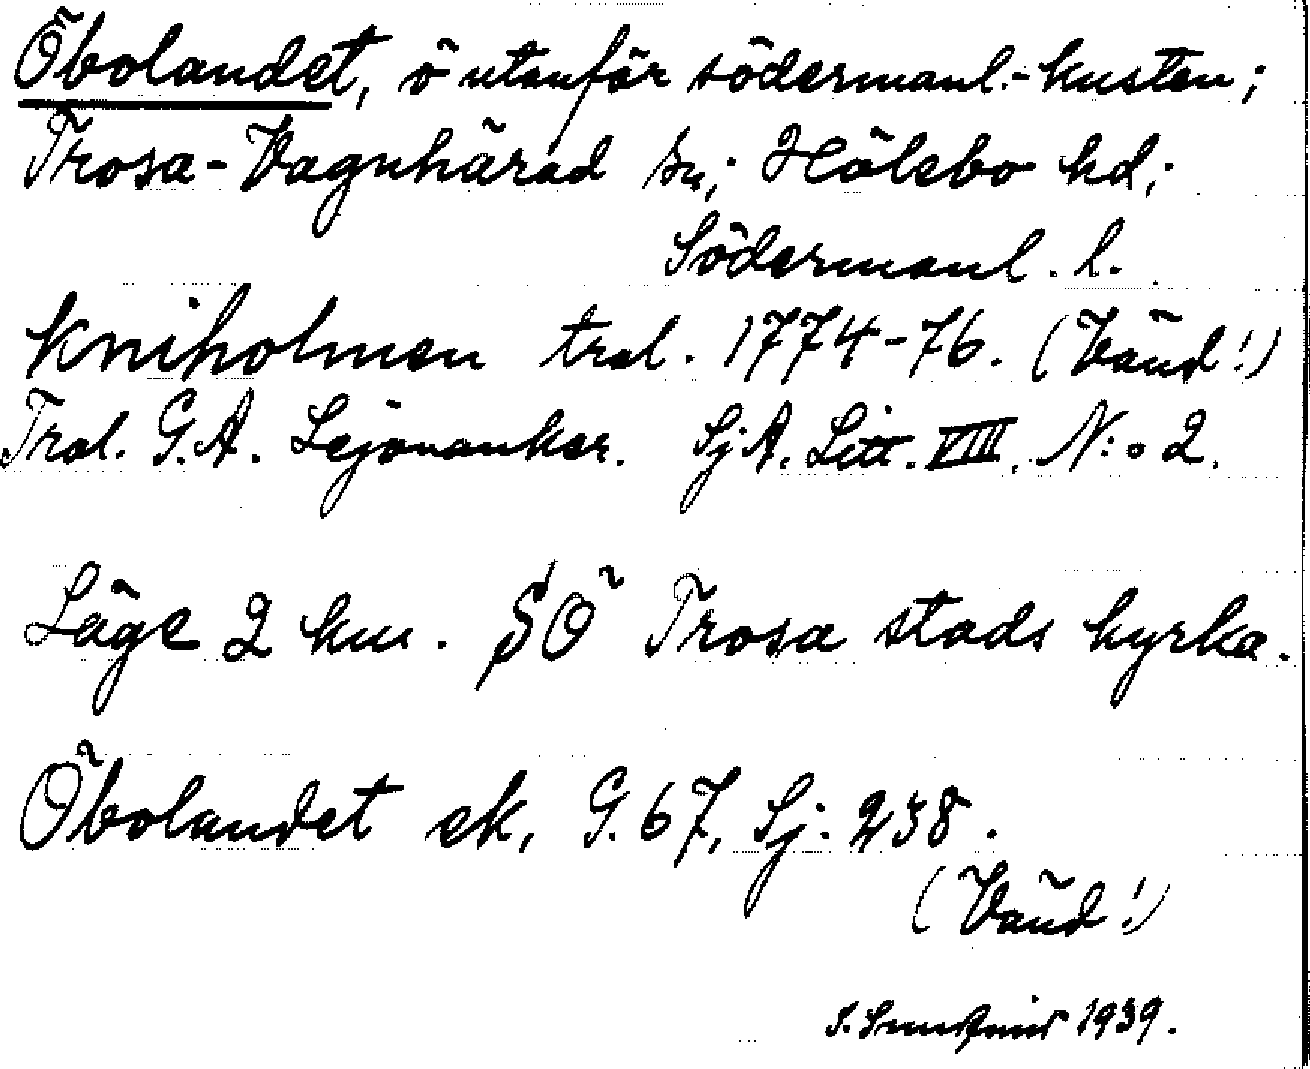 Öbolandet, ö utanför södermanl.-kusten;
Trosa-Vagnhärad sn; Hölebo hd;
Södermanl. l.
Kniholmen trol. 1774-76. (Vänd!)
Trol. G.A. Lejonanker. SjA. Litt. VIII. N:o 2.
Läge 2 km. SÖ Trosa stads kyrka.
Öbolandet ek, G. 67, Sj. 238.
(Vänd!)
S. 1939.